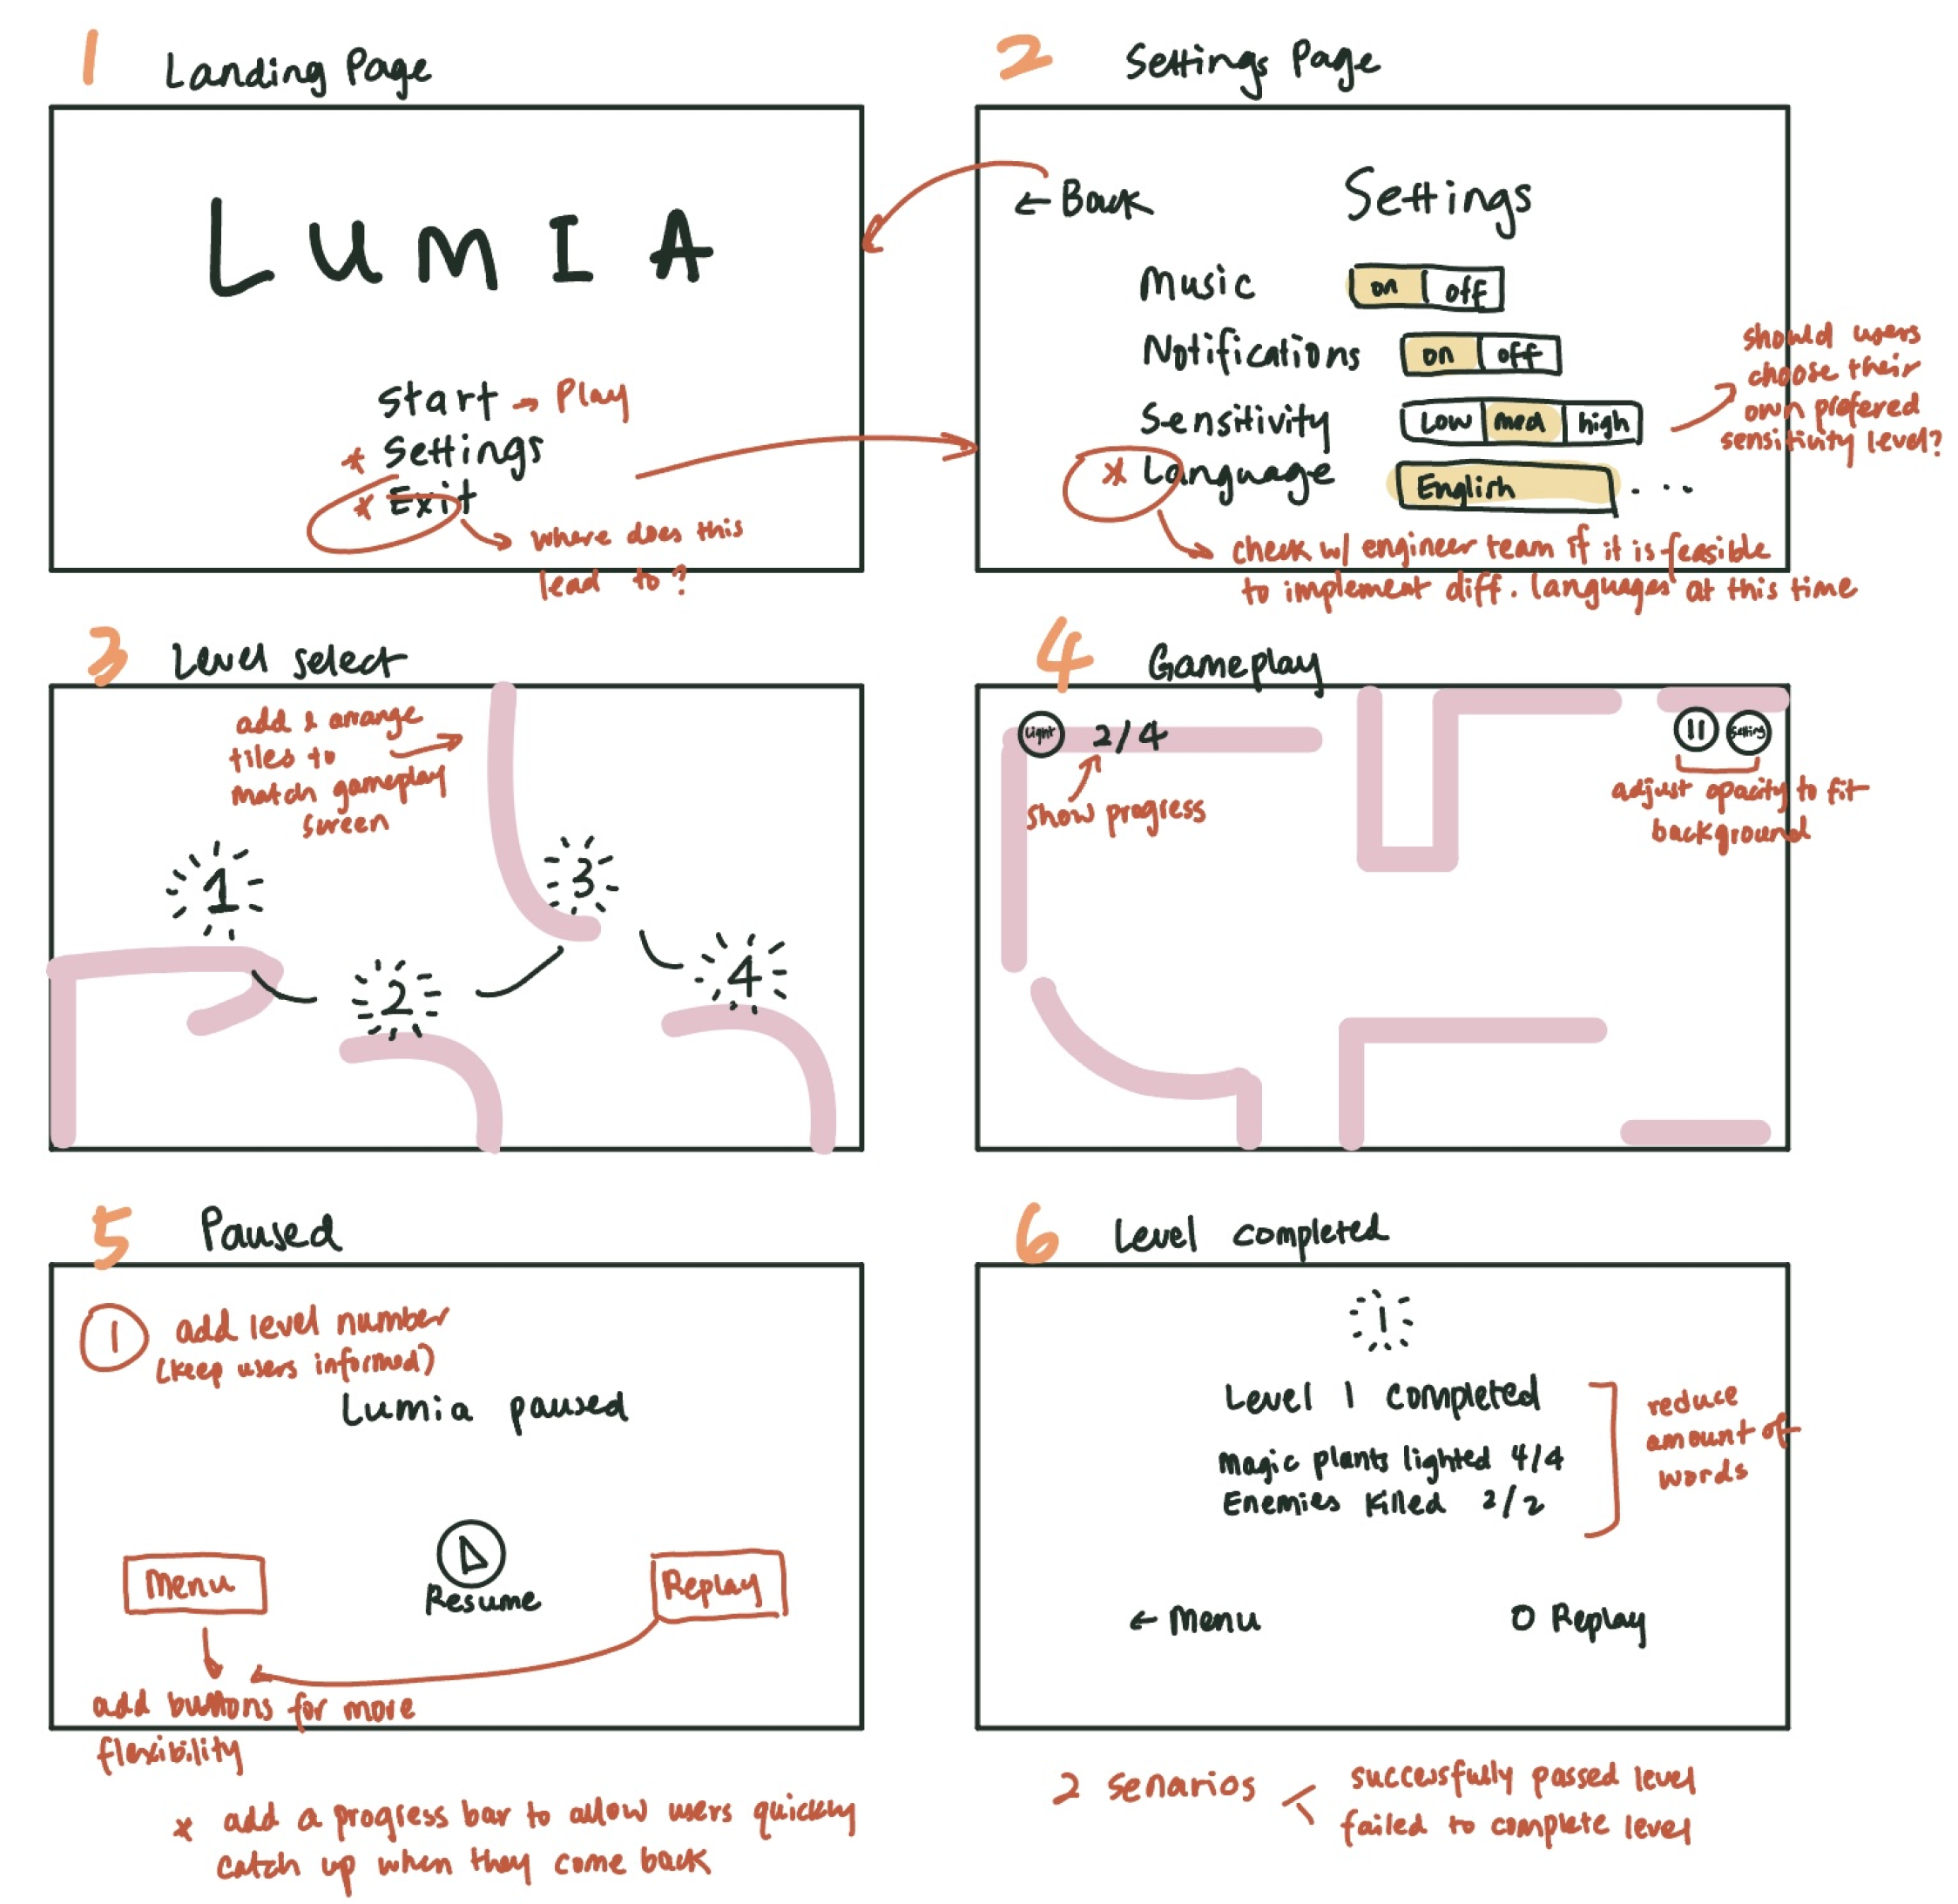 1 Landing Page
LUMIA
Start → Play
* Settings
* Exit
where does this
lead to?
2 Settings Page
← Back
Settings
Music on off
Notifications on off
Sensitivity Low med high
should users
choose their
own prefered
sensitivity level?
* Language English ...
check w/ engineer team if it is feasible
to implement diff. languages at this time
3 Level select
add & arrange
tiles to
match gameplay
screen
1
2
3
4
4 Gameplay
Light 2/4
show progress
Setting
adjust opacity to fit
background
5 Paused
1 add level number
(keep users informed)
Lumia paused
Menu
Resume
Replay
add buttons for more
flexibility
* add a progress bar to allow users quickly
catch up when they come back
6 Level completed
1
Level 1 completed
Magic plants lighted 4/4
Enemies killed 2/2
reduce
amount of
words
← Menu
O Replay
2 senarios < successfully passed level
failed to complete level